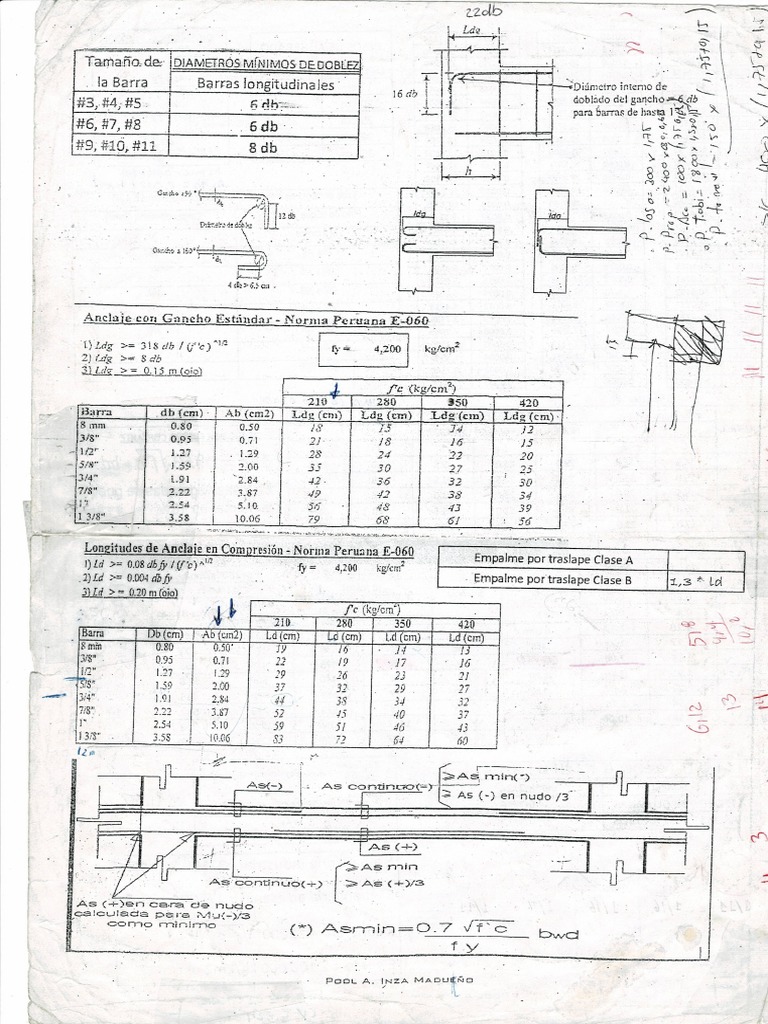 22db
Ldg
Tamaño de la Barra | DIAMETROS MÍNIMOS DE DOBLEZ
Barras longitudinales
#3, #4, #5 | 6 db
#6, #7, #8 | 6 db
#9, #10, #11 | 8 db
16 db
Diámetro interno de
doblado del gancho
para barras de hasta 1"
h
12 db
Diámetro de doblez
Gancho a 180°
db
4 db > 6.5 cm
ldg
ldg
Anclaje con Gancho Estándar - Norma Peruana E-060
1) Ldg >= 318 db / (f'c)^1/2
2) Ldg >= 8 db
3) Ldg >= 0.15 m (ojo)
fy = 4,200 kg/cm2
f'c (kg/cm2)
210 280 350 420
Barra db (cm) Ab (cm2) Ldg (cm) Ldg (cm) Ldg (cm) Ldg (cm)
8 mm 0.80 0.50 18 15 14 12
3/8" 0.95 0.71 21 18 16 15
1/2" 1.27 1.29 28 24 22 20
5/8" 1.59 2.00 35 30 27 25
3/4" 1.91 2.84 42 36 32 30
7/8" 2.22 3.87 49 42 38 34
1" 2.54 5.10 56 48 43 39
1 3/8" 3.58 10.06 79 68 61 56
Longitudes de Anclaje en Compresión - Norma Peruana E-060
1) Ld >= 0.08 db fy / (f'c)^1/2
2) Ld >= 0.004 db fy
3) Ld >= 0.20 m (ojo)
fy = 4,200 kg/cm2
Empalme por traslape Clase A
Empalme por traslape Clase B 1,3 * Ld
f'c (kg/cm2)
210 280 350 420
Barra Db (cm) Ab (cm2) Ld (cm) Ld (cm) Ld (cm) Ld (cm)
8 mm 0.80 0.50 19 16 14 13
3/8" 0.95 0.71 22 19 17 16
1/2" 1.27 1.29 29 26 23 21
5/8" 1.59 2.00 37 32 29 27
3/4" 1.91 2.84 44 38 34 32
7/8" 2.22 3.87 52 45 40 37
1" 2.54 5.10 59 51 46 43
1 3/8" 3.58 10.06 83 72 64 60
As(-)
As continuo(-)
≥ As min(-)
≥ As (-) en nudo /3
As (+)
As continuo(+)
≥ As min
≥ As (+)/3
As (+)en cara de nudo
calculada para Mu(-)/3
como minimo
(*) Asmin=0.7 √f'c bwd
fy
POOL A. INZA MADUEÑO